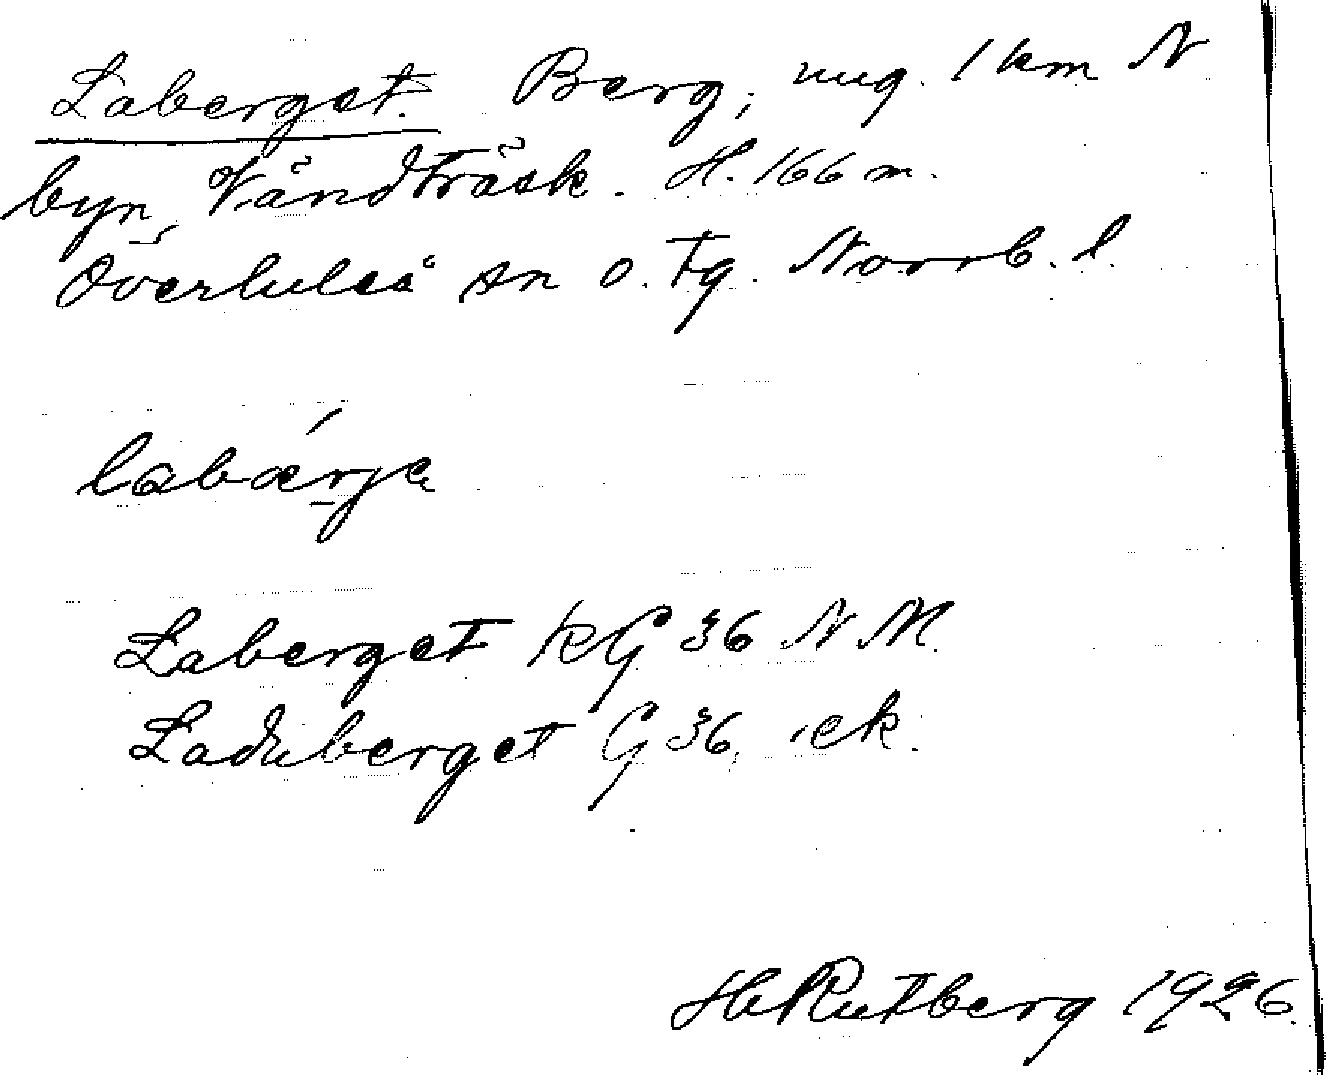 Laberget. Berg, ung. 1 km N
byn Vändträsk. H. 166 m.
Överluleå sn o. tg. Norrb. l.
labærje
Laberget KG 36 N M.
Laduberget G 36, ek.
H Rutberg 1926.